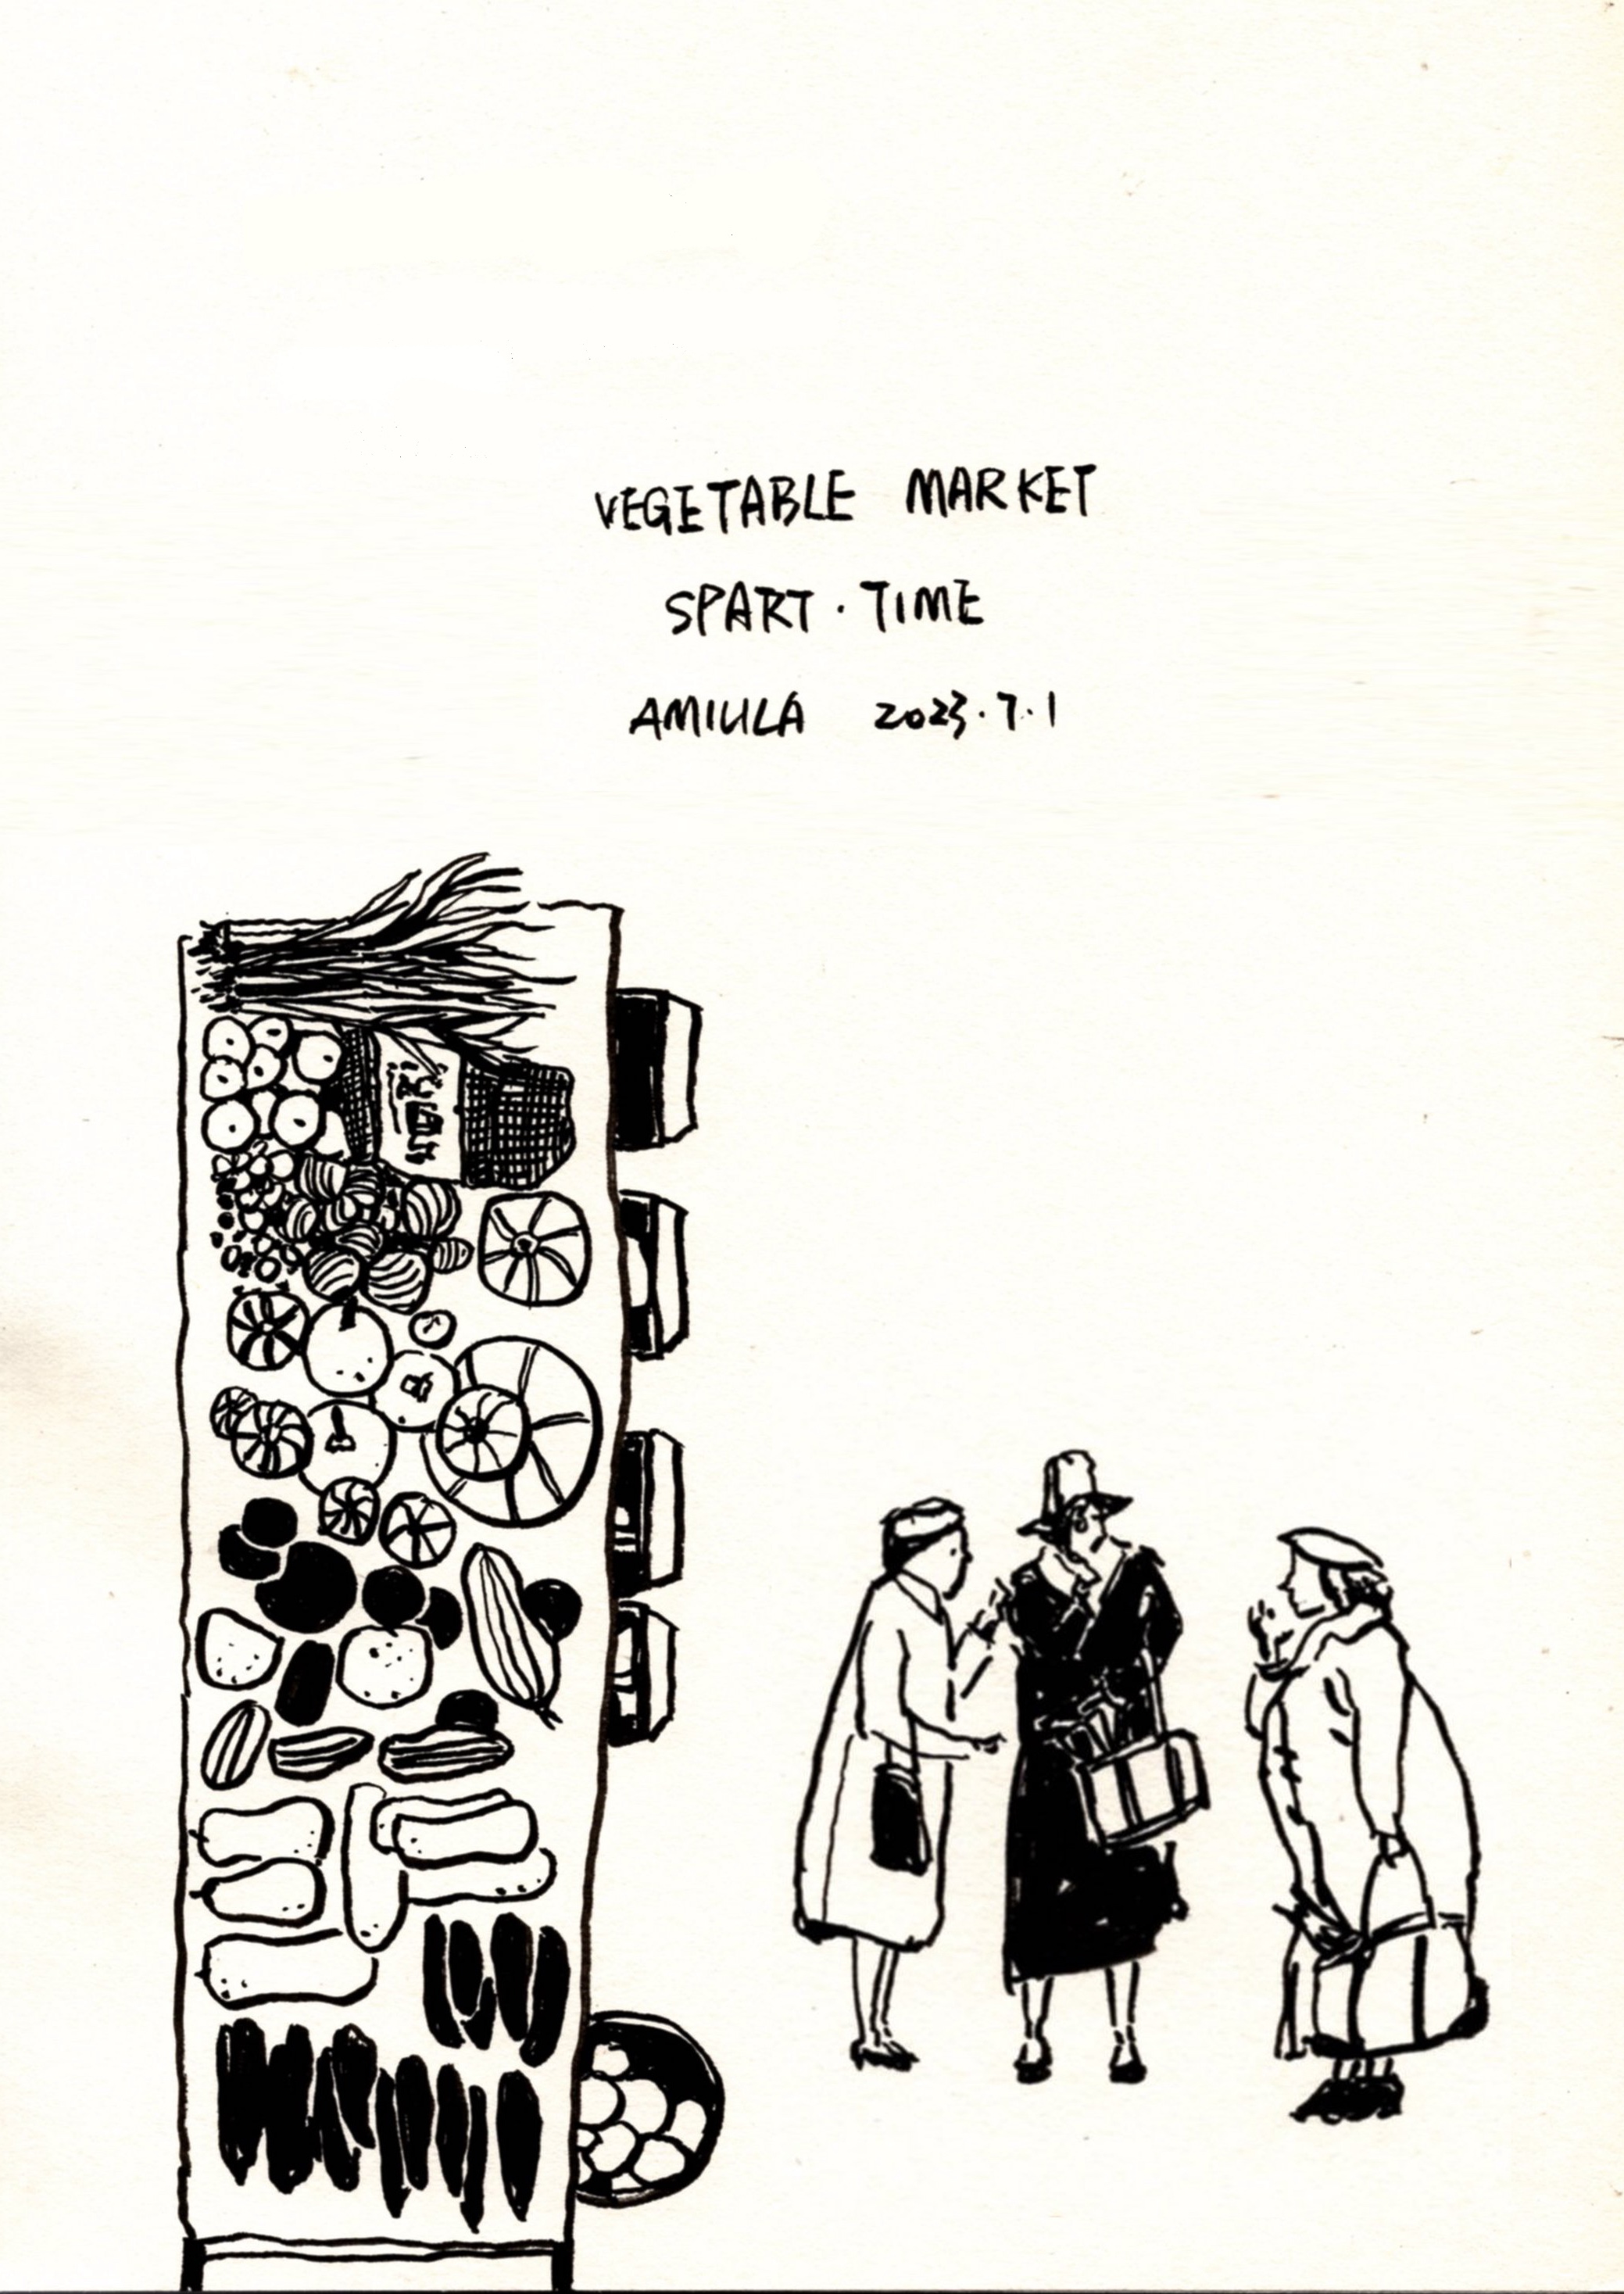 VEGETABLE MARKET
SPART · TIME
AMIULA 2023.7.1